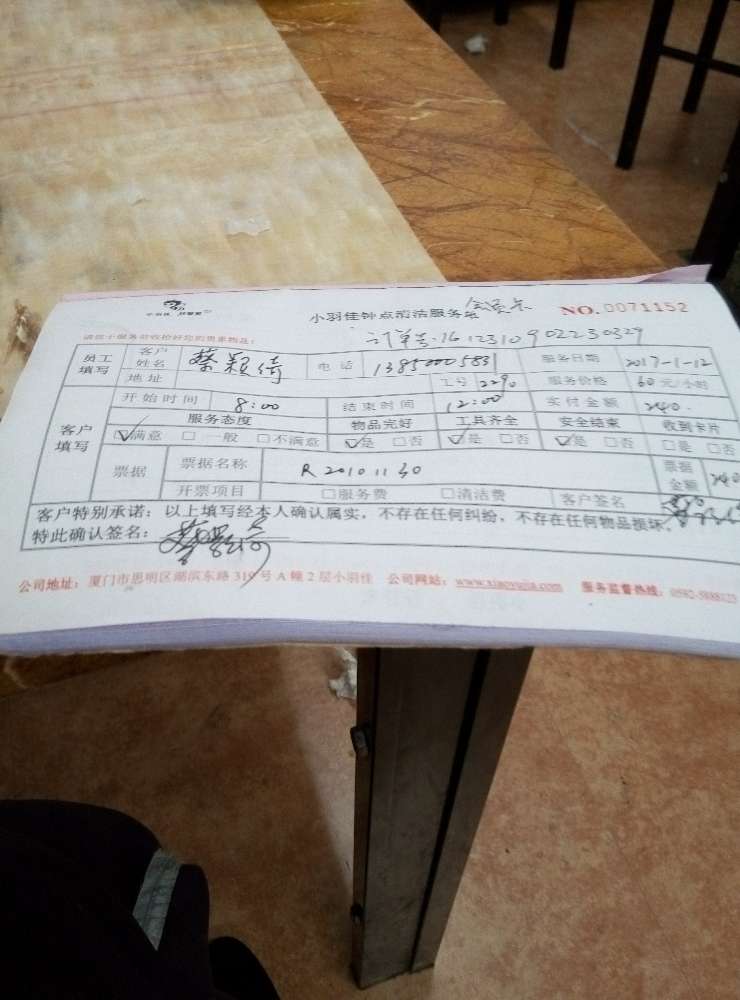 小羽佳钟点清洁服务 会员卡
NO.0071152
订单号:1612310902230329
请您于服务前收检好您的贵重物品:
员工填写 客户姓名 蔡颖绮 电话 13850005831 服务日期 2017-1-12
地址 工号 2290 服务价格 60元/小时
客户填写 开始时间 8:00 结束时间 12:00 实付金额 240.
服务态度 物品完好 工具齐全 安全结束 收到卡片
☑满意 □一般 □不满意 ☑是 □否 ☑是 □否 ☑是 □否 □是 □否
票据 票据名称 R20101130 票据金额 240
开票项目 □服务费 □清洁费 客户签名
客户特别承诺:以上填写经本人确认属实,不存在任何纠纷,不存在任何物品损坏,
特此确认签名:
公司地址:厦门市思明区湖滨东路319号A幢2层小羽佳 公司网站:www.xiaoyujia.com 服务监督热线:0592-5888123